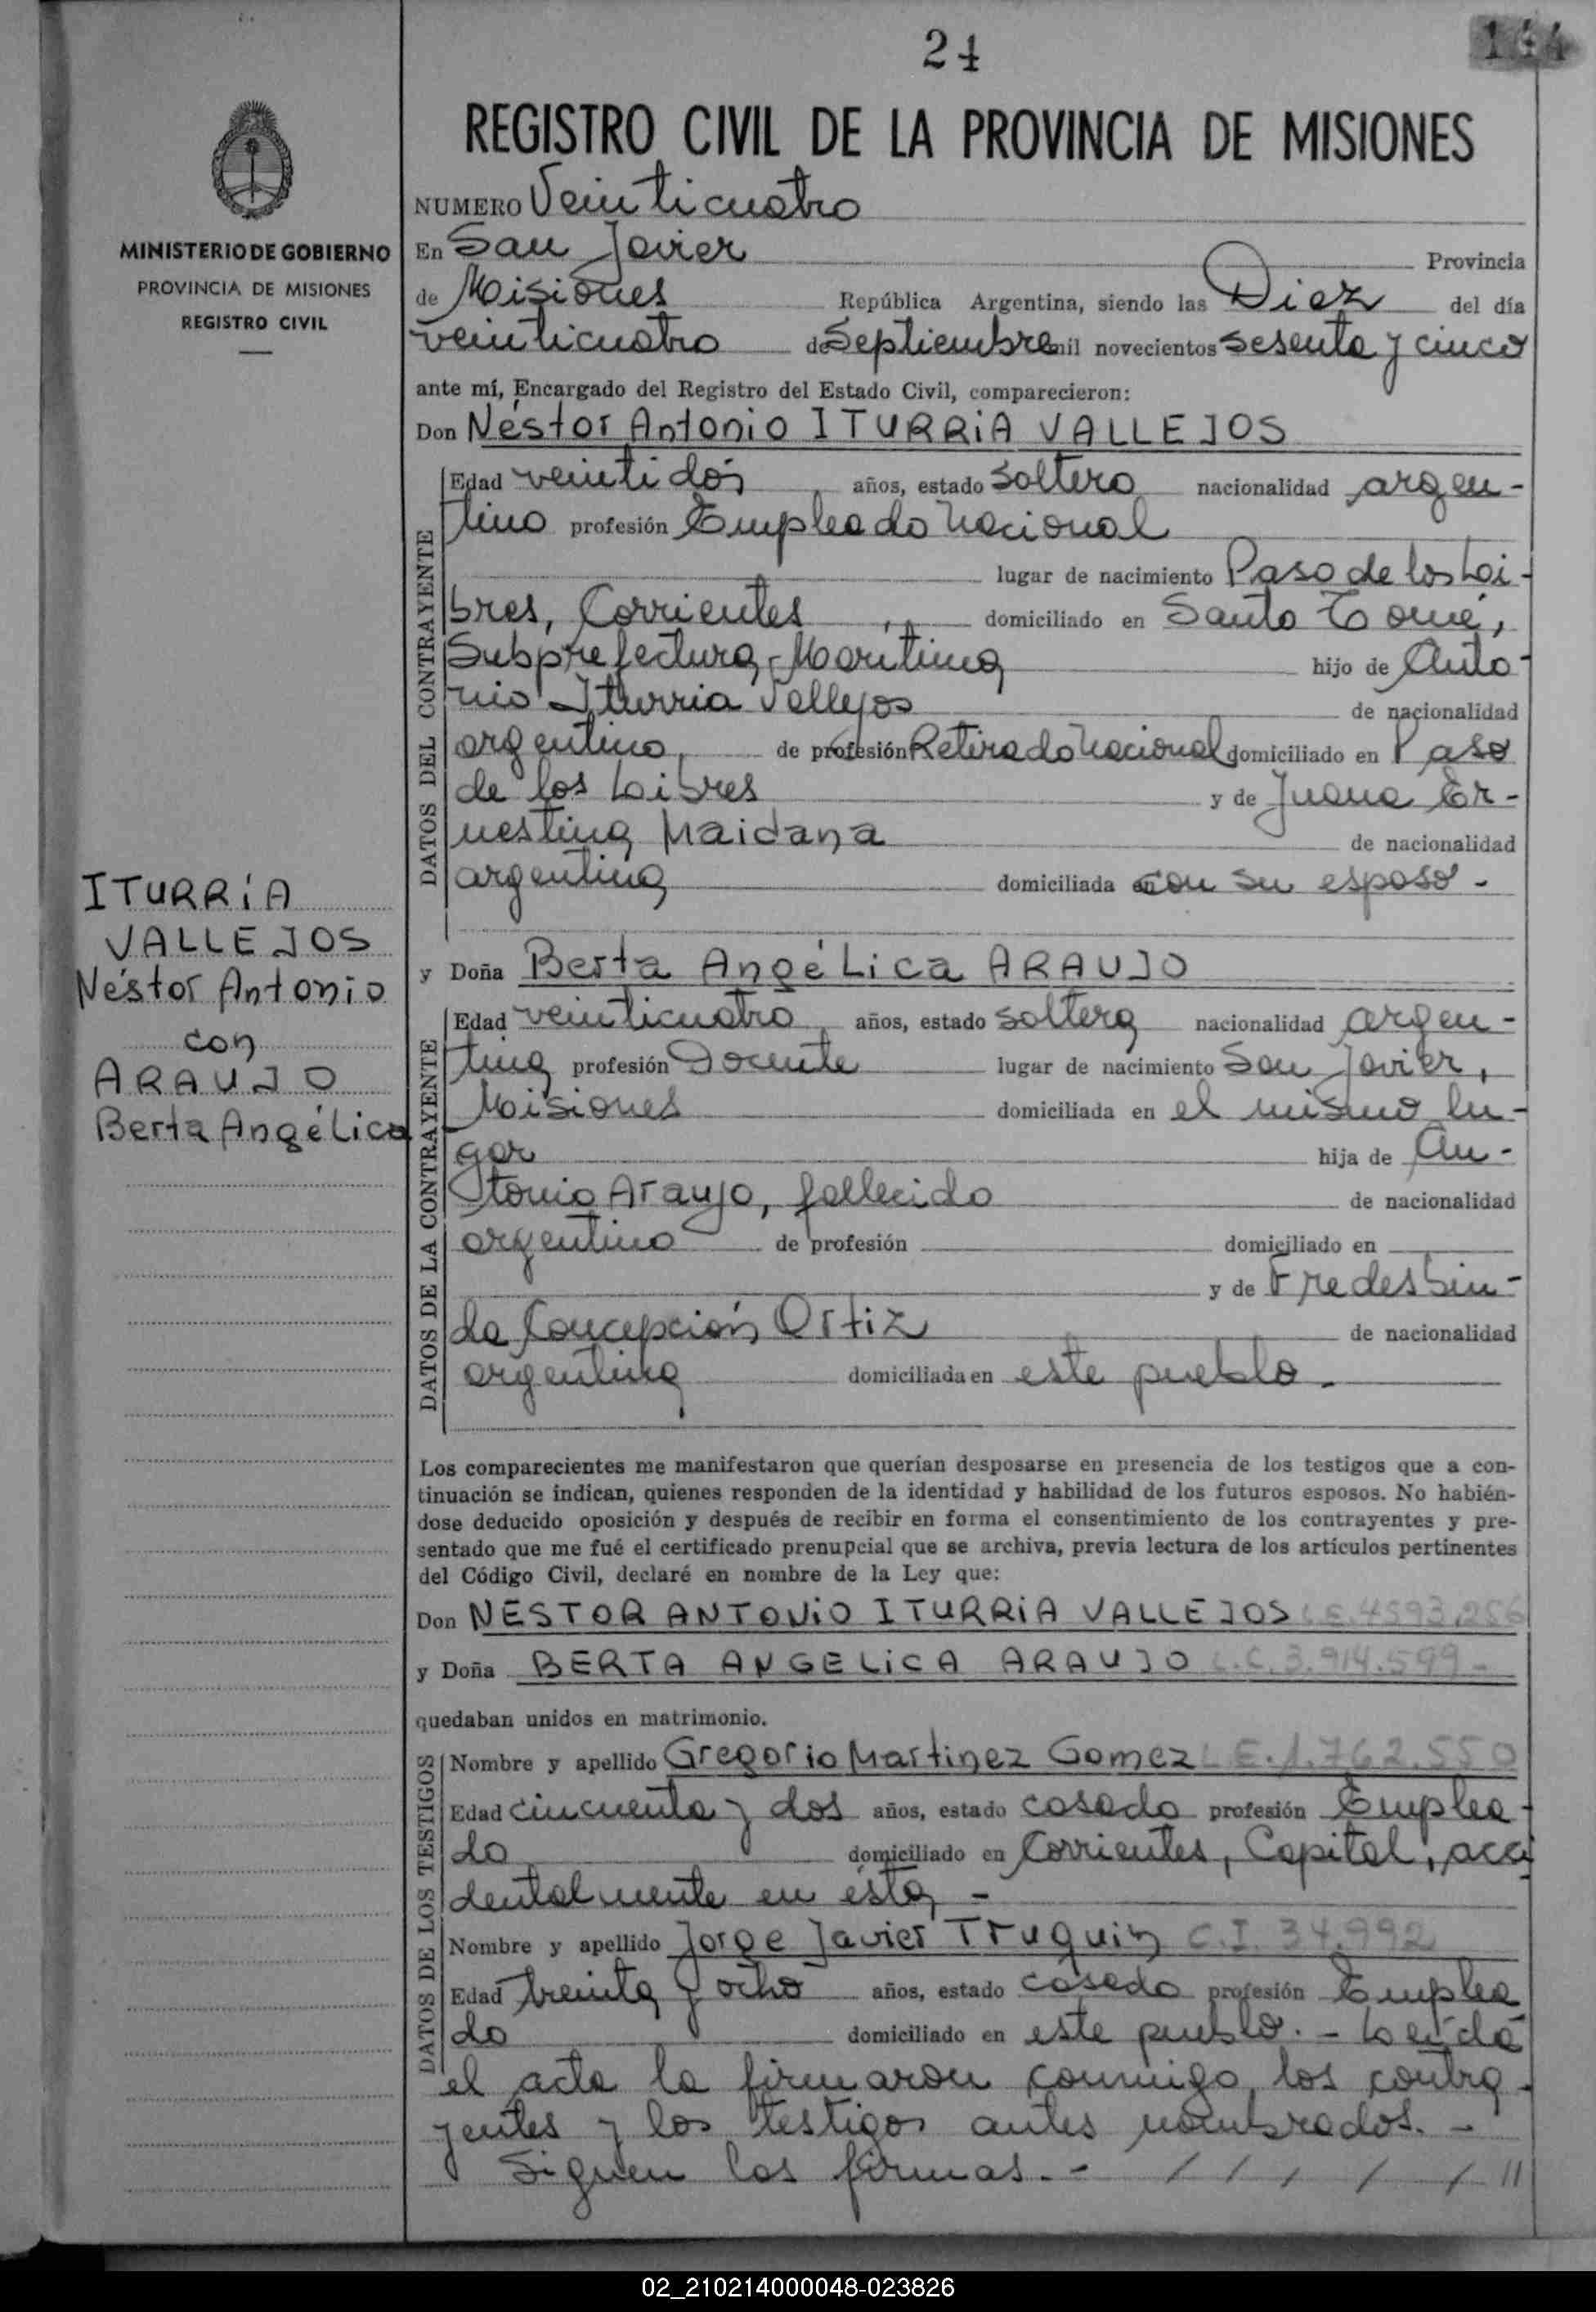 24
REGISTRO CIVIL DE LA PROVINCIA DE MISIONES
MINISTERIO DE GOBIERNO
PROVINCIA DE MISIONES
REGISTRO CIVIL
ITURRiA
VALLEJOS
Néstor Antonio
con
ARAUJO
Berta Angélica
NUMERO Veinticuatro
En San Javier Provincia
de Misiones República Argentina, siendo las Diez del día
veinticuatro de Septiembre mil novecientos sesenta y cinco
ante mí, Encargado del Registro del Estado Civil, comparecieron:
Don Néstor Antonio ITURRiA VALLEJOS
DATOS DEL CONTRAYENTE
Edad veintidós años, estado soltero nacionalidad argen-
tino profesión Empleado Nacional
lugar de nacimiento Paso de los Li-
bres, Corrientes, domiciliado en Santo Tomé,
Subprefectura Marítima hijo de Anto-
nio Iturria Vallejos de nacionalidad
argentino, de profesión Retirado Nacional domiciliado en Paso
de los Libres y de Juana Er-
nestina Maidana de nacionalidad
argentina domiciliada en con su esposo -
y Doña Berta Angélica ARAUJO
DATOS DE LA CONTRAYENTE
Edad veinticuatro, años, estado soltera nacionalidad argen-
tina profesión Docente lugar de nacimiento San Javier,
Misiones domiciliada en el mismo lu-
gar hija de An-
tonio Araujo, fallecido de nacionalidad
argentino de profesión domiciliado en
y de Fredesbin-
da Concepción Ortiz de nacionalidad
argentina domiciliada en este pueblo.
Los comparecientes me manifestaron que querían desposarse en presencia de los testigos que a con-
tinuación se indican, quienes responden de la identidad y habilidad de los futuros esposos. No habién-
dose deducido oposición y después de recibir en forma el consentimiento de los contrayentes y pre-
sentado que me fué el certificado prenupcial que se archiva, previa lectura de los artículos pertinentes
del Código Civil, declaré en nombre de la Ley que:
Don NESTOR ANTONiO ITURRiA VALLEJOS L.E. 4593.256
y Doña BERTA ANGELiCA ARAUJO L.C. 3.914.599-
quedaban unidos en matrimonio.
DATOS DE LOS TESTIGOS
Nombre y apellido Gregorio Martinez Gomez L.E. 1.762.550
Edad cincuenta y dos años, estado casado profesión Emplea-
do domiciliado en Corrientes, Capital, acci
dentalmente en ésta, -
Nombre y apellido Jorge Javier Truquin C.I. 34.992
Edad treinta y ocho años, estado casado profesión Emplea
do domiciliado en este pueblo. - Leída
el acta la firmaron conmigo, los contra-
yentes y los testigos antes nombrados. -
Siguen las firmas. - / / / / / //
02_210214000048-023826